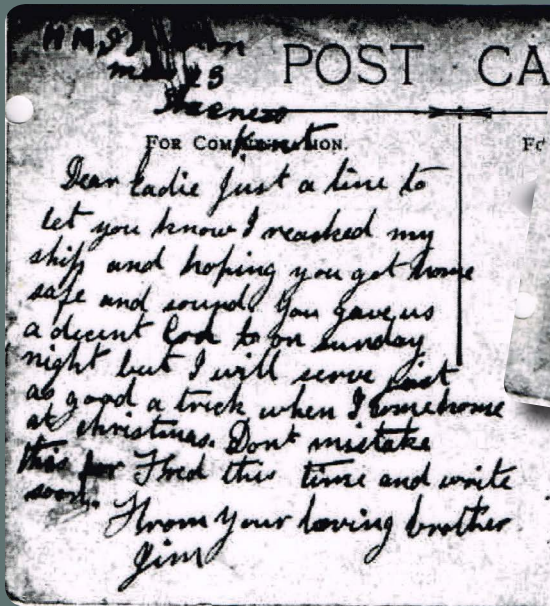 H.M.S
POST CA
Sheerness
Kent
FOR COMMUNICATION.
Fo
Dear Eadie just a line to
let you know I reached my
ship and hoping you got home
safe and sound. You gave us
a decent to on sunday
night but I will serve just
as good a trick when I come home
at christmas. Dont mistake
this for Fred this time and write
soon.
From your loving brother
Jim